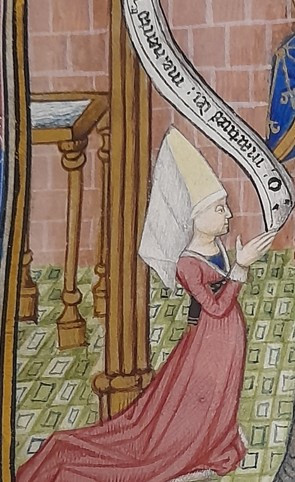 O · mater dei : memento